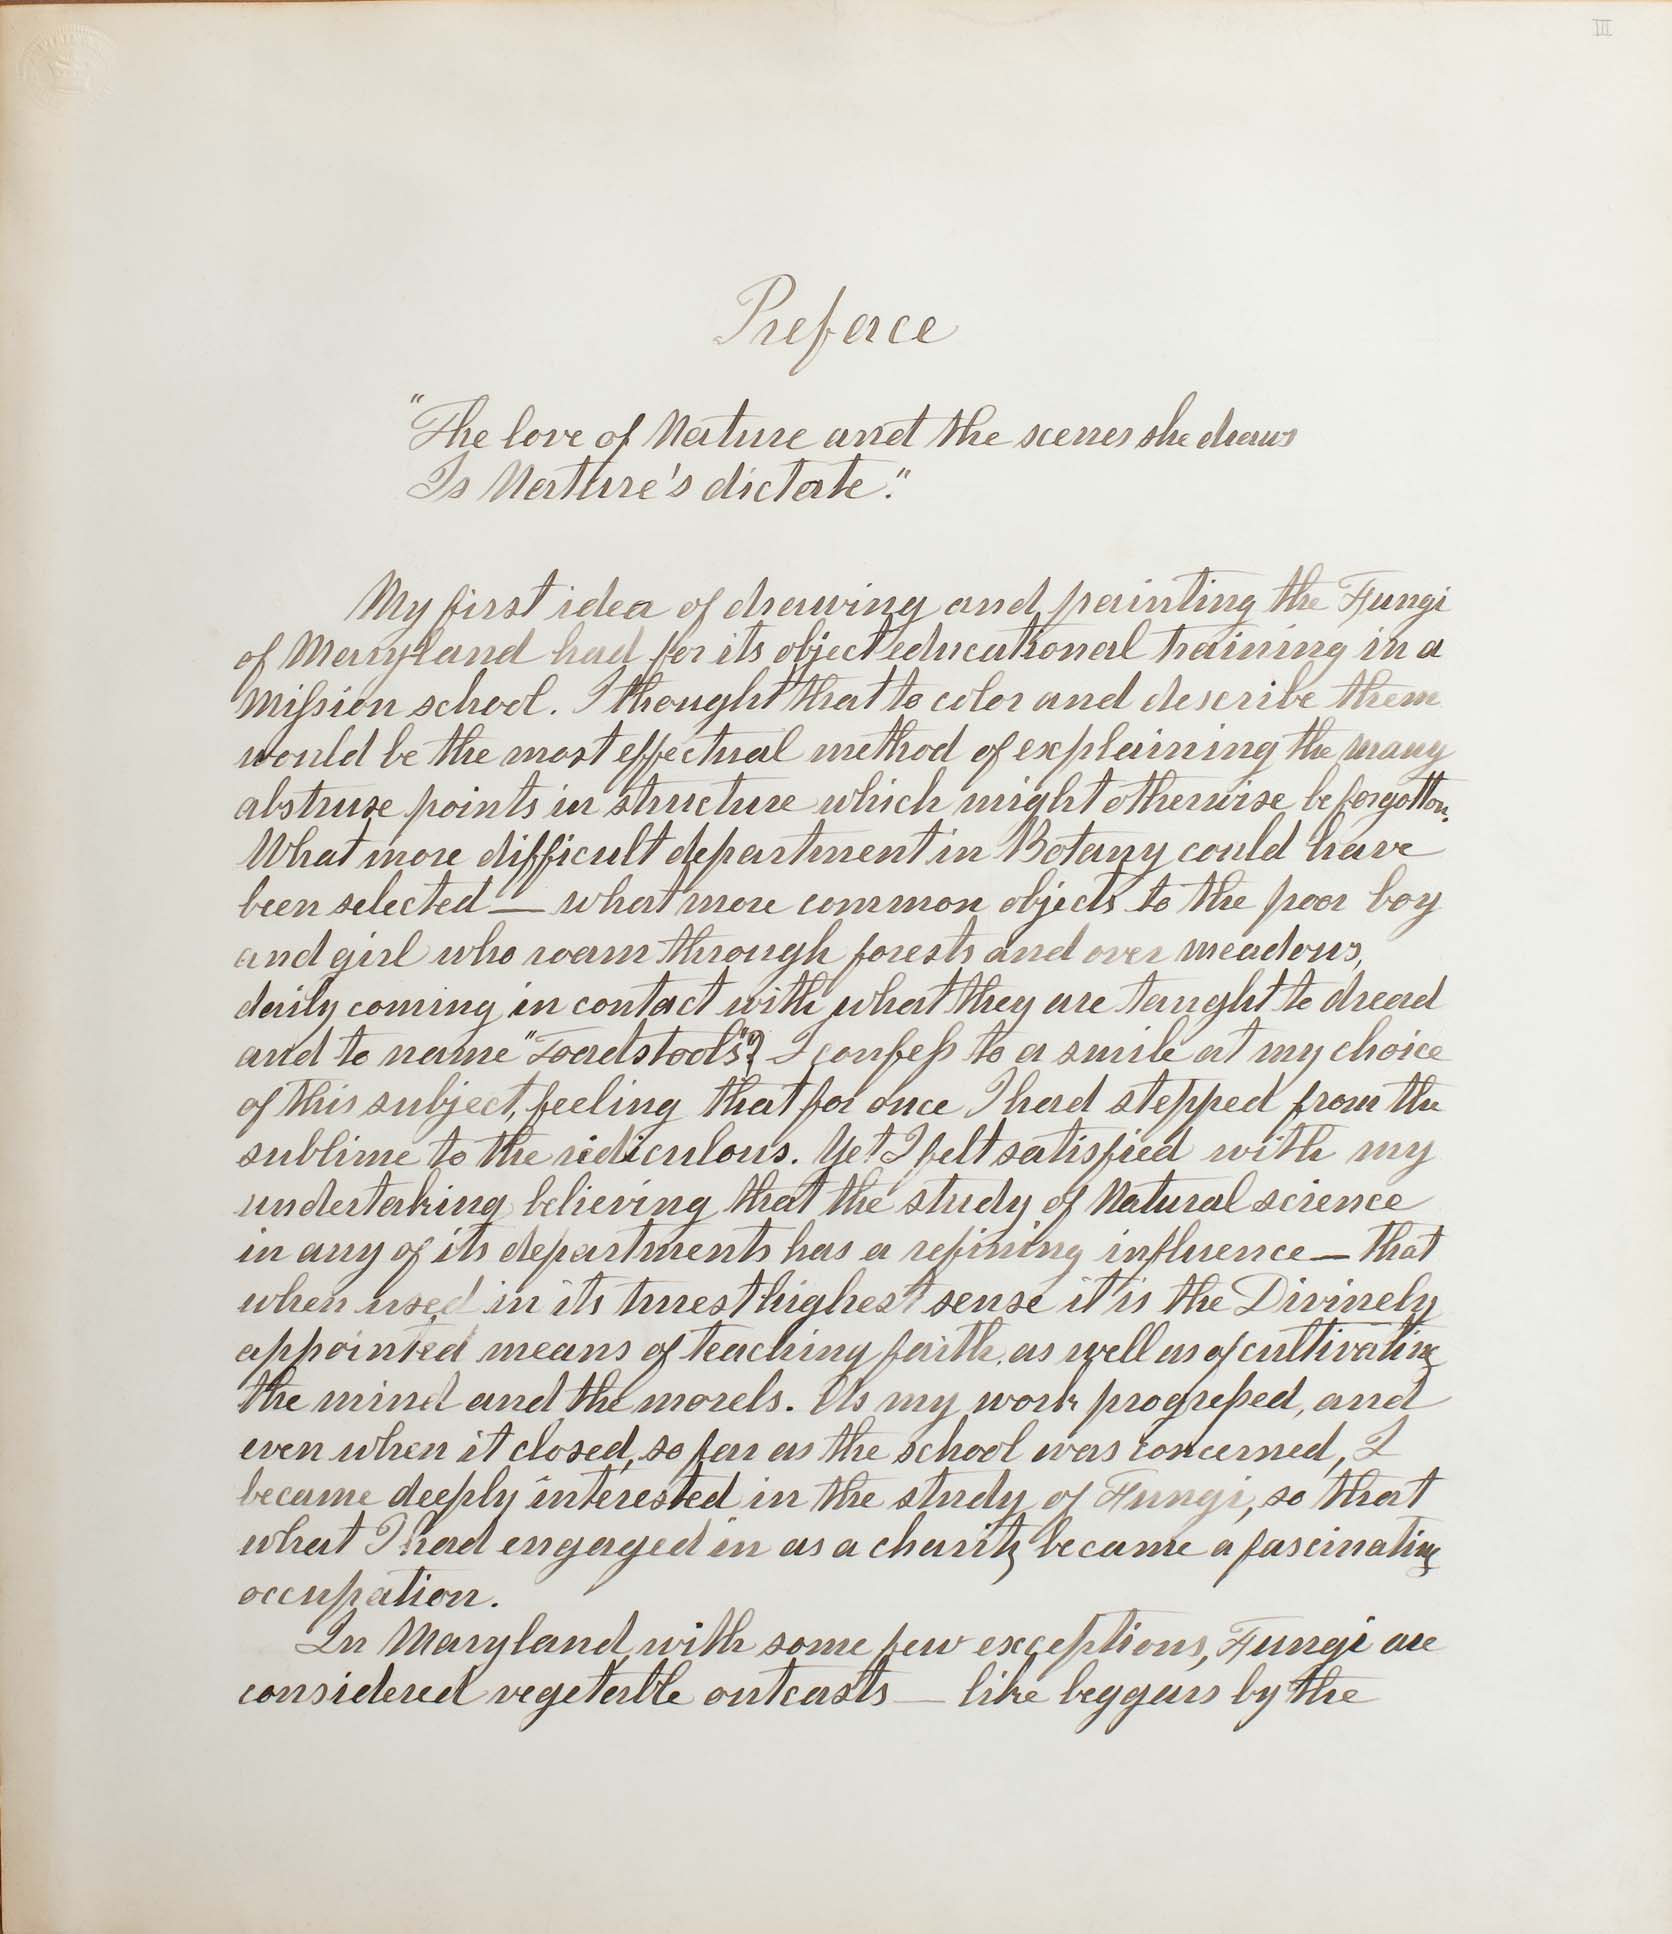 III
Preface
"The love of Nature and the scenes she draws
Is Nature's dictate."
My first idea of drawing and painting the Fungi
of Maryland had for its object educational training in a
Mission school. I thought that to color and describe them
would be the most effectual method of explaining the many
abstruse points in structure which might otherwise be forgotten.
What more difficult department in Botany could have
been selected — what more common objects to the poor boy
and girl who roam through forests and over meadows,
daily coming in contact with what they are taught to dread
and to name "Toadstools"? I confess to a smile at my choice
of this subject, feeling that for once I had stepped from the
sublime to the ridiculous. Yet I felt satisfied with my
undertaking believing that the study of Natural science
in any of its departments has a refining influence — that
when used in its truest highest sense it is the Divinely
appointed means of teaching faith, as well as of cultivating
the mind and the morels. As my work progressed, and
even when it closed, so far as the school was concerned, I
became deeply interested in the study of Fungi, so that
what I had engaged in as a charity became a fascinating
occupation.
In Maryland, with some few exceptions, Fungi are
considered vegetable outcasts — like beggars by the